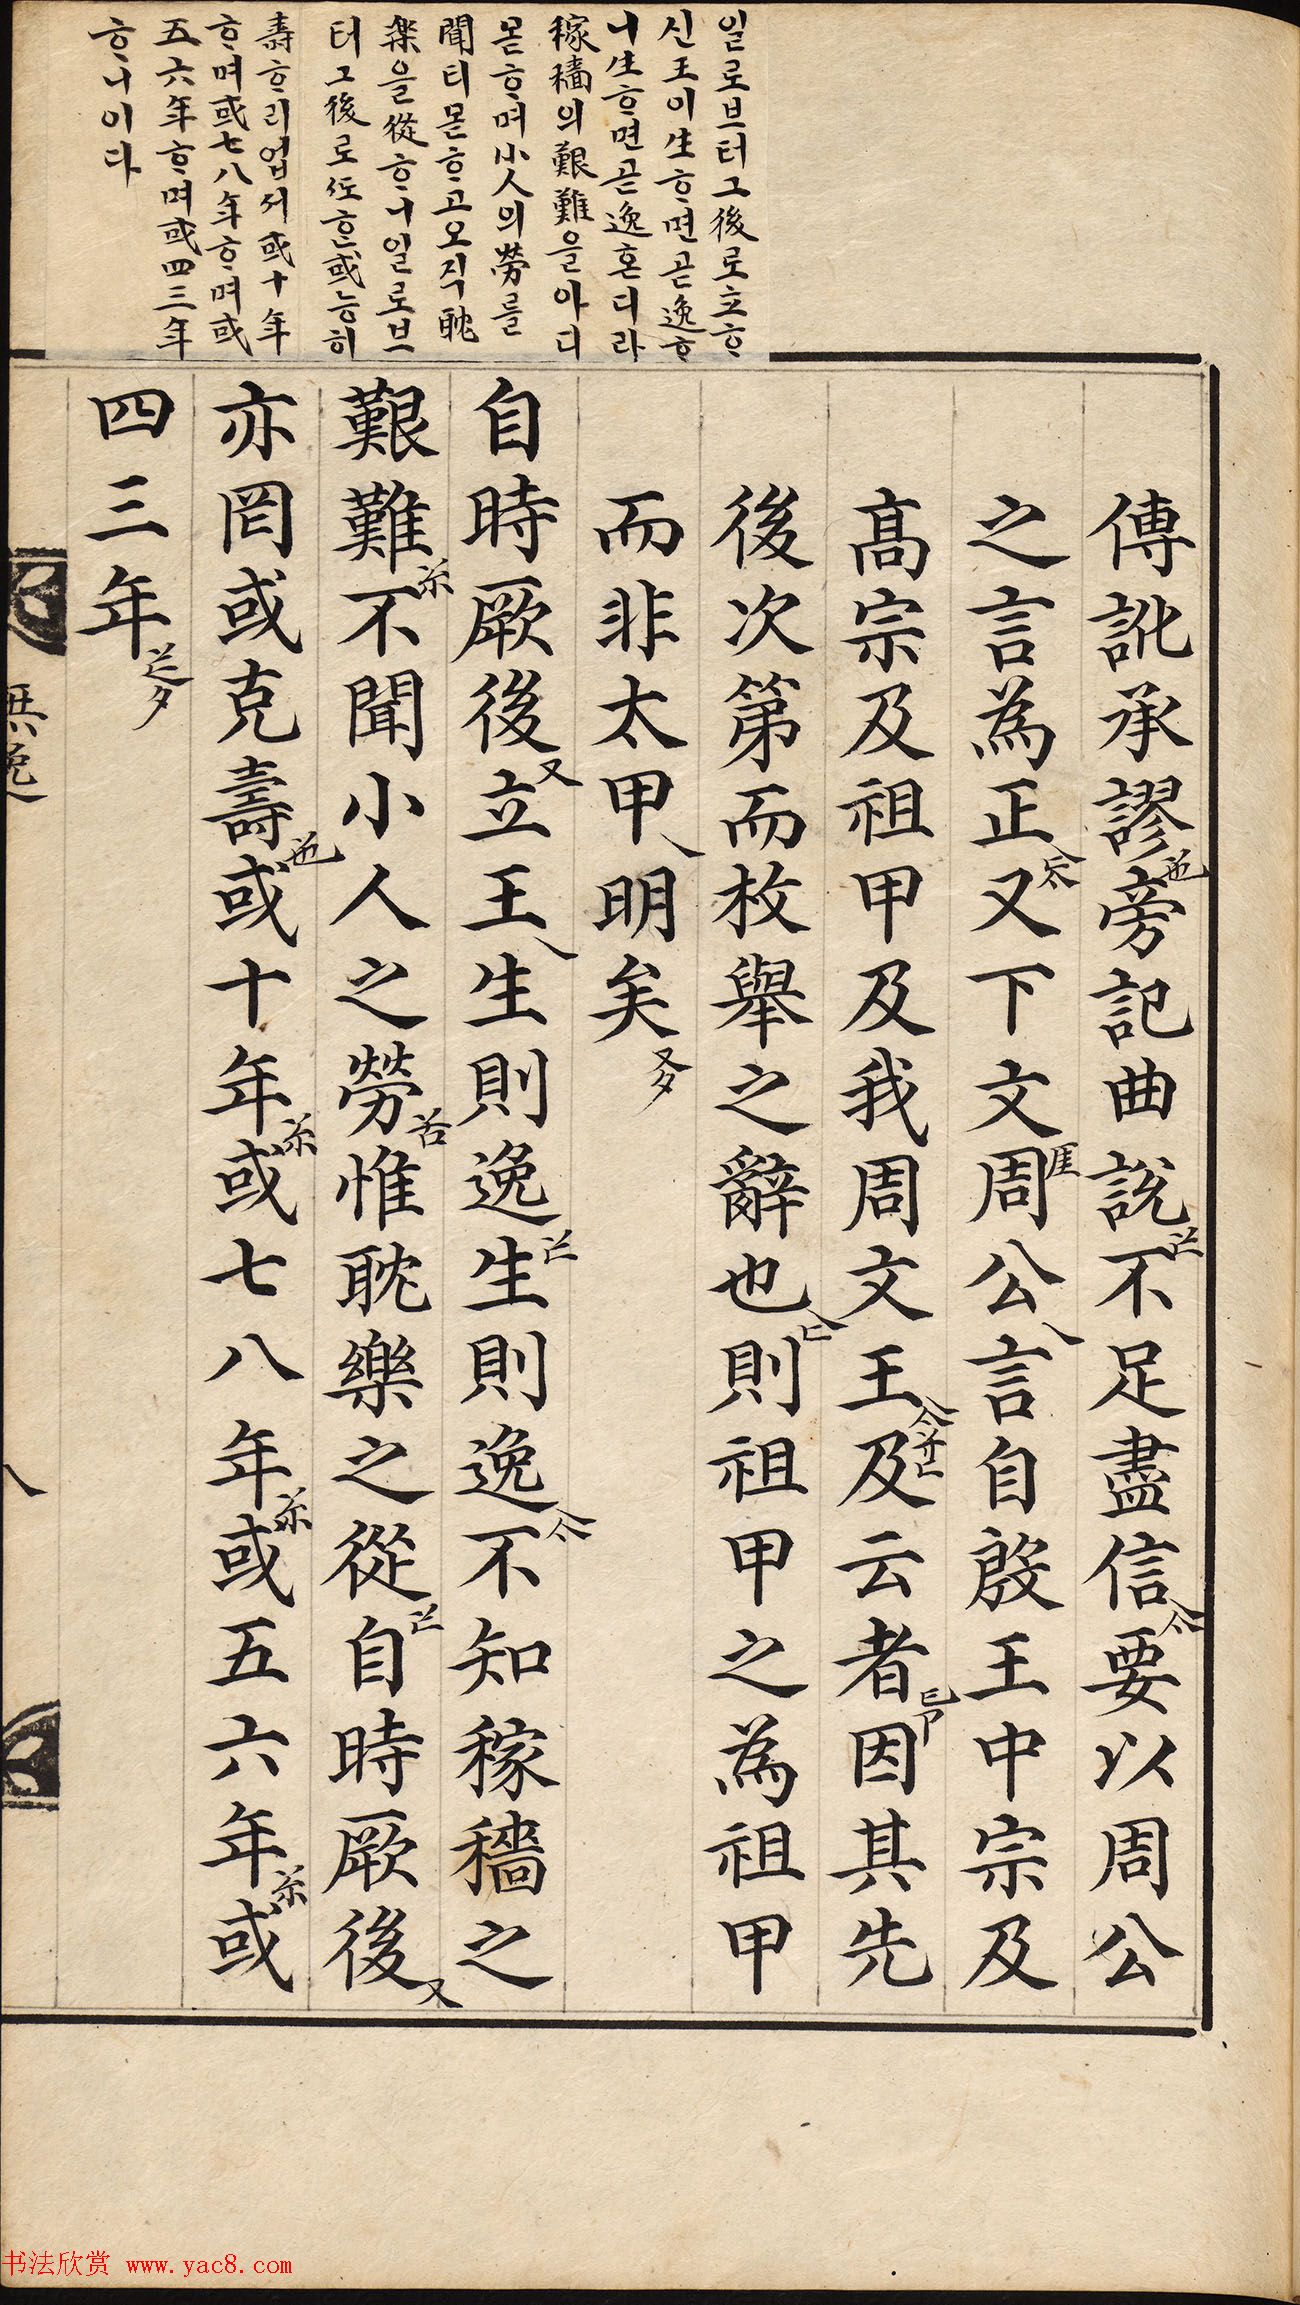 일로브터그後로立ᄒᆞ
신王이生ᄒᆞ면곧逸ᄒᆞ
니生ᄒᆞ면곧逸혼디라
稼穡의艱難을아디
몯ᄒᆞ며小人의勞를
聞티몯ᄒᆞ고오직耽
樂을從ᄒᆞ니일로브
터그後로도ᄒᆞᆫ或능히
壽ᄒᆞ리업서或十年
ᄒᆞ며或七八年ᄒᆞ며或
五六年ᄒᆞ며或四三年
ᄒᆞ니이다
傳訛承謬旁記曲說不足盡信要以周公
之言為正又下文周公言自殷王中宗及
高宗及祖甲及我周文王及云者因其先
後次第而枚舉之辭也則祖甲之為祖甲
而非太甲明矣
自時厥後立王生則逸生則逸不知稼穡之
艱難不聞小人之勞惟耽樂之從自時厥後
亦罔或克壽或十年或七八年或五六年或
四三年
無逸
八
书法欣赏 www.yac8.com